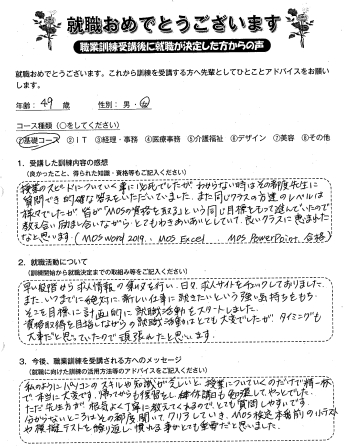 就職おめでとうございます
職業訓練受講後に就職が決定した方からの声
就職おめでとうございます。これから訓練を受講する方へ先輩としてひとことアドバイスをお願いします。
年齢: 49 歳 性別: 男・女
コース種類 (○をしてください)
①基礎コース ②IT ③経理・事務 ④医療事務 ⑤介護福祉 ⑥デザイン ⑦美容 ⑧その他
1. 受講した訓練内容の感想
(良かったこと、得られた知識・資格等もご記入ください)
授業のスピードについていく事に必死でしたが、わからない時はその都度先生に
質問でき的確な答えをいただいていました。また同じクラスの方達のレベルは
様々でしたが皆が「MOSの資格を取る」という同じ目標をもって進んでいたので
教え合い励まし合いながらとてもわきあいあいとしていて、良いクラスに恵まれた
なと思います (MOS Word 2019、MOS Excel MOS PowerPoint 合格)
2. 就職活動について
(訓練開始から就職決定までの取組み等をご記入ください)
早い段階から求人情報の収集を行い、日々、求人サイトをチェックしておりました。
また、いつまでに絶対に新しい仕事に就きたいという強い気持ちをもち
そこを目標に計画的に就職活動をスタートしました。
資格取得を目指しながらの就職活動はとても大変でしたが、タイミングも
大事だと思っていたので頑張れたと思います。
3. 今後、職業訓練を受講される方へのメッセージ
(就職に向けた訓練の活用方法等のアドバイスをご記入ください)
私のようにパソコンのスキルや知識が乏しいと、授業についていくのだけで精一杯
で本当に大変です。帰ってからも復習をし
ただ先生方が根気よく丁寧に教えてくれるので、とても質問しやすいです。
分からないところはその都度聞いてクリアしていき、MOS検定本番前の
や模擬テストを繰り返し慣れる事がとても重要だと思いました。